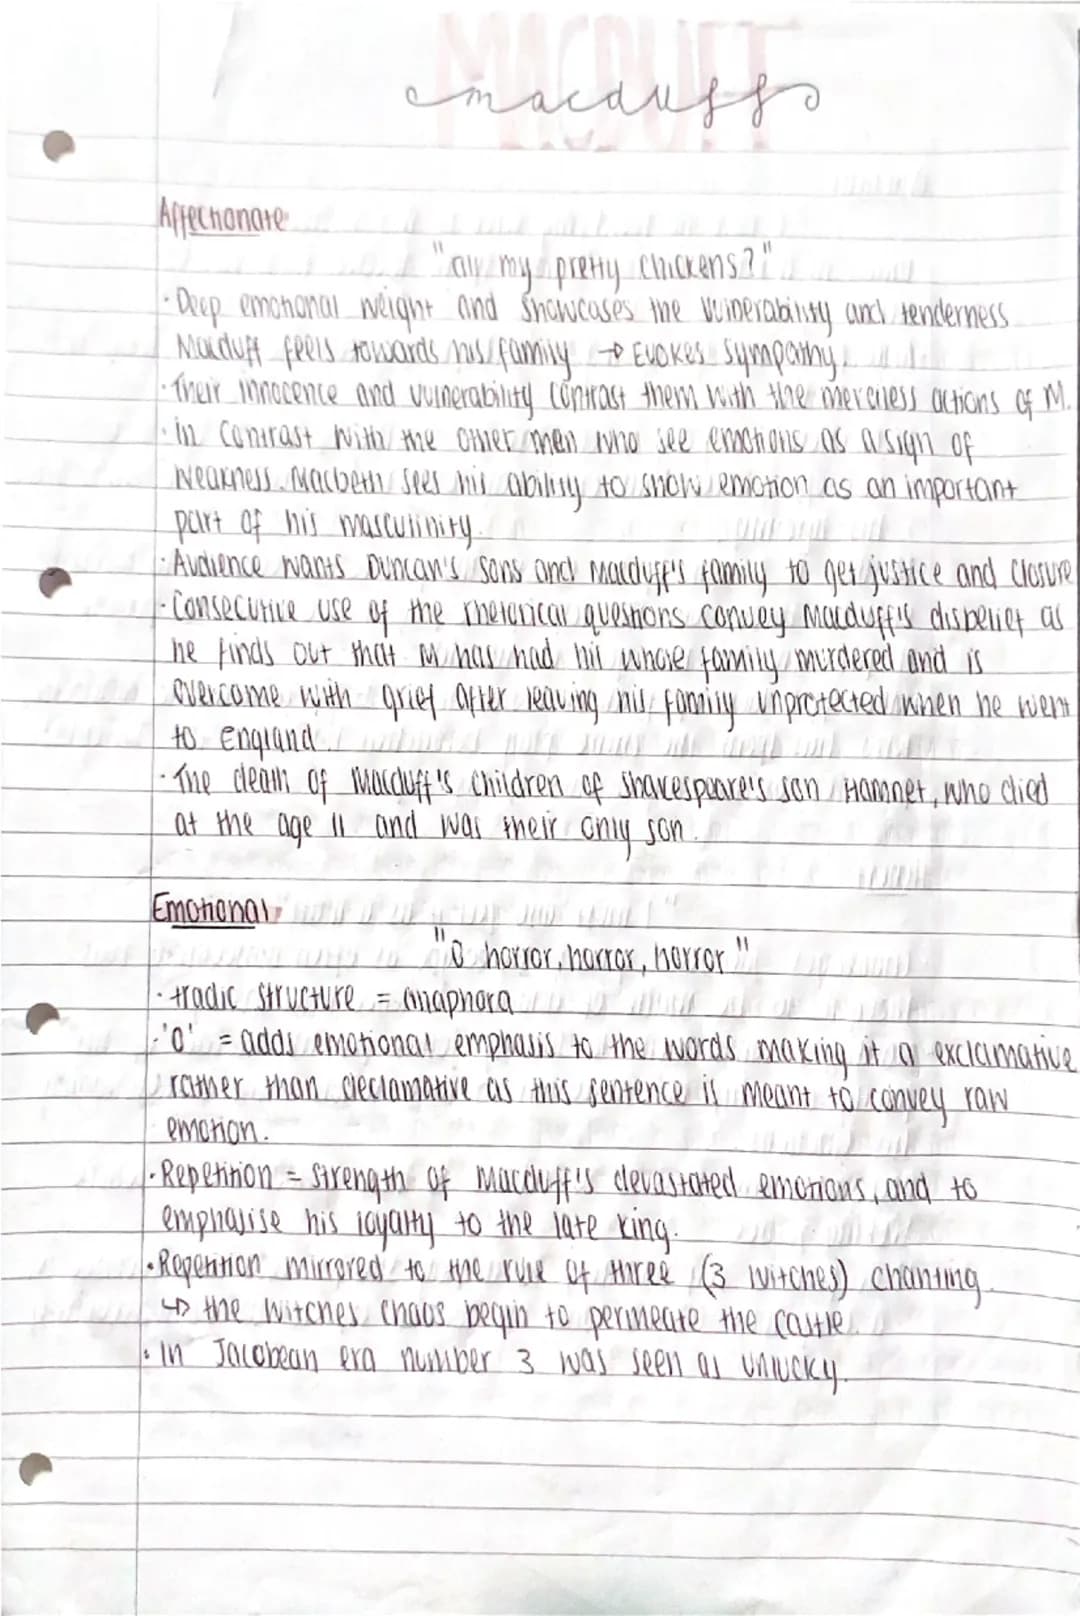 macduff
Affectionate
"all my pretty chickens?"
· Deep emotional weight and showcases the vulnerability and tenderness
Macduff feels towards his family → Evokes sympathy.
· Their innocence and vulnerability contrast them with the merciless actions of M.
· In contrast with the other men who see emotions as a sign of
weakness. Macbeth sees his ability to show emotion as an important
part of his masculinity.
· Audience wants Duncan's sons and Macduff's family to get justice and closure
· Consecutive use of the rhetorical questions convey Macduff's disbelief as
he finds out that M has had his whole family murdered and is
overcome with grief after leaving his family unprotected when he went
to England.
· The death of Macduff's children of Shakespeare's son Hamnet, who died
at the age 11 and was their only son.
Emotional
"O horror, horror, horror"
· tradic structure = anaphora
· 'O' = adds emotional emphasis to the words making it a exclamative
rather than declamative as this sentence is meant to convey raw
emotion.
· Repetition = strength of Macduff's devastated emotions, and to
emphasise his loyalty to the late king.
· Repetition mirrored to the rule of three (3 witches) chanting
↳ the witches chaos begin to permeate the castle.
· In Jacobean era number 3 was seen as unlucky.